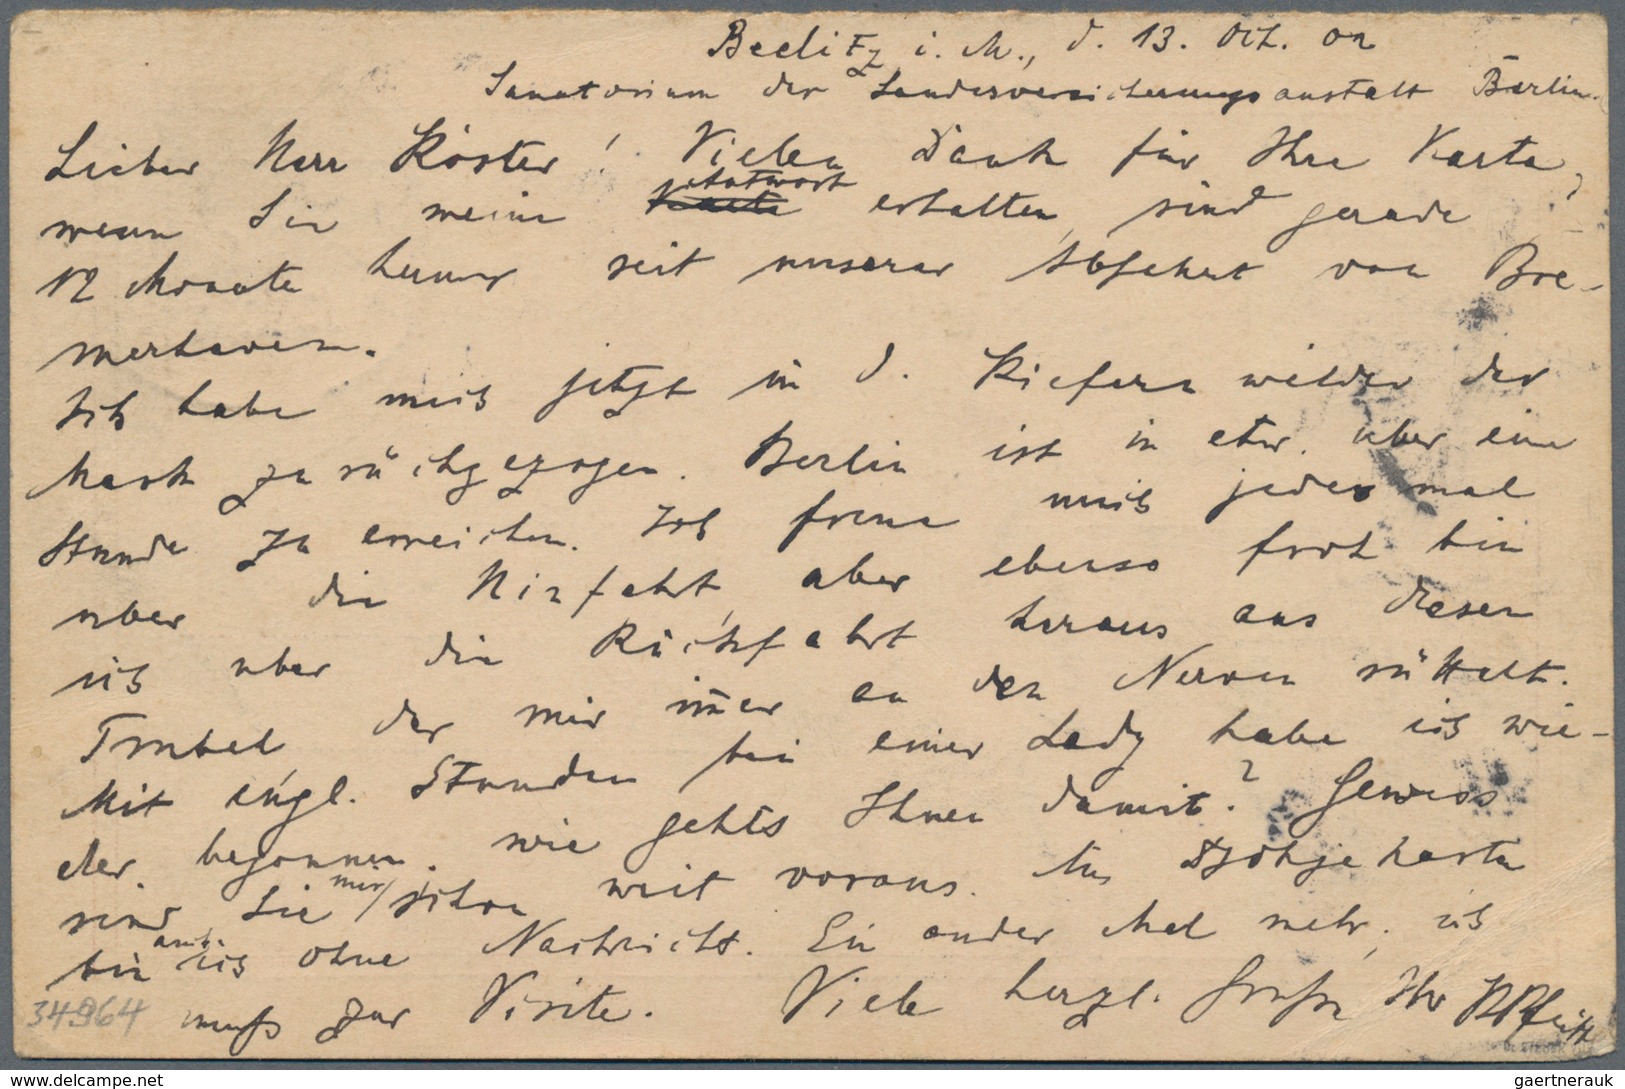 Beelitz i. M., d. 13. Oct. 02
Sanatorium der Landesversicherungsanstalt Berlin.
Lieber Herr Köster! Vielen Dank für Ihre Karte,
wenn Sie meine Karte Antwort erhalten, sind gerade
12 Monate herum seit unserer Abfahrt von Bre-
merhaven.
Ich habe mich jetzt in d. Kiefernwälder der
Mark zurückgezogen. Berlin ist in etw. über eine
Stunde zu erreichen. Ich freue mich jedesmal
über die Hinfahrt, aber ebenso froh bin
ich über die Rückfahrt heraus aus diesen
Trubel, der mir im̅er an den Nerven rüttelt.
Mit engl. Stunden bei einer Lady habe ich wie-
der begonnen. wie gehts Ihnen damit? Gewiss
sind Sie mir schon weit voraus. Aus
bin auch ich ohne Nachricht. Ein ander Mal mehr, ich
muß zur Visite. Viele herzl. Grüße Ihr
34964
gaertnerauk